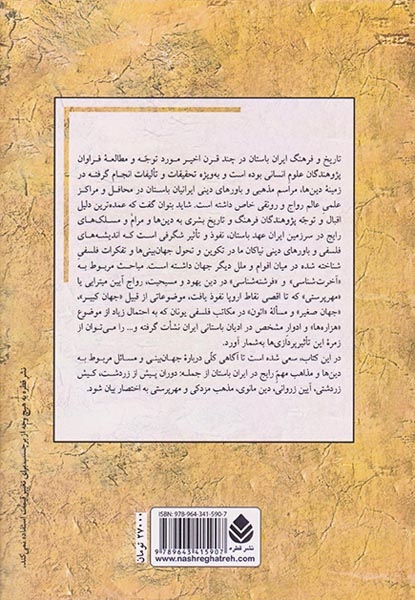 تاریخ و فرهنگ ایران باستان در چند قرن اخیر مورد توجّه و مطالعهٔ فراوان
پژوهندگان علوم انسانی بوده است و به‌ویژه تحقیقات و تألیفات انجام گرفته در
زمینهٔ دین‌ها، مراسم مذهبی و باورهای دینی ایرانیان باستان در محافل و مراکز
علمی عالم رواج و رونقی خاص داشته است. شاید بتوان گفت که عمده‌ترین دلیل
اقبال و توجّه پژوهندگان فرهنگ و تاریخ بشری به دین‌ها و مرام و مسلک‌های
رایج در سرزمین ایران عهد باستان، نفوذ و تأثیر شگرفی است که اندیشه‌های
فلسفی و باورهای دینی نیاکان ما در تکوین و تحول جهان‌بینی‌ها و تفکرات فلسفی
شناخته شده در میان اقوام و ملل دیگر جهان داشته است. مباحث مربوط به
«آخرت‌شناسی» و «فرشته‌شناسی» در دین یهود و مسیحیت، رواج آیین میترایی یا
«مهرپرستی» که تا اقصی نقاط اروپا نفوذ یافت، موضوعاتی از قبیل «جهان کبیر»،
«جهان صغیر» و مسألهٔ «ائون» در مکاتب فلسفی یونان که به احتمال زیاد از موضوع
«هزاره‌ها» و ادوار مشخص در ادیان باستانی ایران نشأت گرفته و... را می‌توان از
زمرهٔ این تأثیرپردازی‌ها به‌شمار آورد.
در این کتاب، سعی شده است تا آگاهی کلّی دربارهٔ جهان‌بینی و مسائل مربوط به
دین‌ها و مذاهب مهمّ رایج در ایران باستان از جمله: دوران پیش از زردشت، کیش
زردشتی، آیین زروانی، دین مانوی، مذهب مزدکی و مهرپرستی به اختصار بیان شود.
نشر قطره به هیچ وجه از برچسب برای تغییر قیمت استفاده نمی‌کند.
ISBN: 978-964-341-590-7
9 789643 415907
نشر قطره
www.nashreghatreh.com
۲۷۰۰۰ تومان